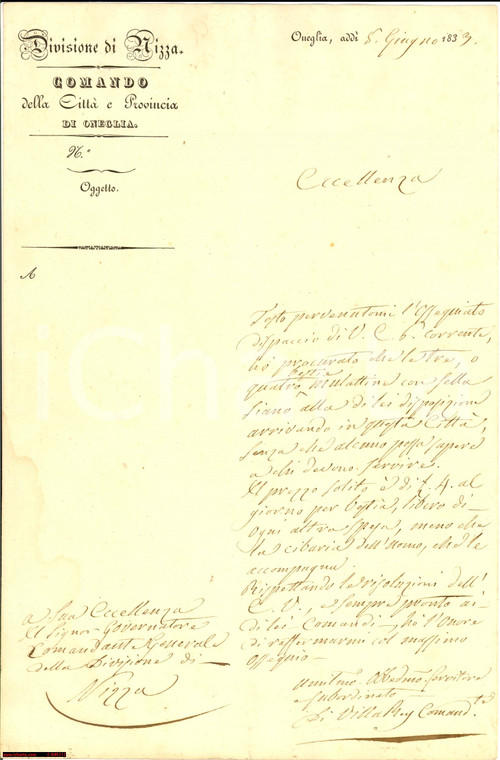 Divisione di Nizza.
COMANDO
della Città e Provincia
DI ONEGLIA.
N.°
Oggetto.
A
Oneglia, addì 8. Giugno 1833.
Eccellenza
Tosto pervenutomi l'Ossequiato
dispaccio di V. E. 6. corrente,
hò procurato che le tre, o
quattro bestie mulattine con sella
siano alla di lei disposizione
arrivando in questa Città,
senza che alcuno possa sapere
a chi devono servire.
Il prezzo solito è di £. 4. al
giorno per bestia, libero di
ogni altra spesa, meno che
la cibaria dell'Uomo, che le
accompagna.
Rispettando le risoluzioni dell'
E. V., e sempre pronto ai
di lei Comandi, hò l'Onore
di raffermarmi col massimo
ossequio
Umilmo. Obbedmo. servitore
e subordinato
Di Villarey Comandte
a Sua Eccellenza
Il Signor Governatore
Comandante Generale
della Divisione di
Nizza